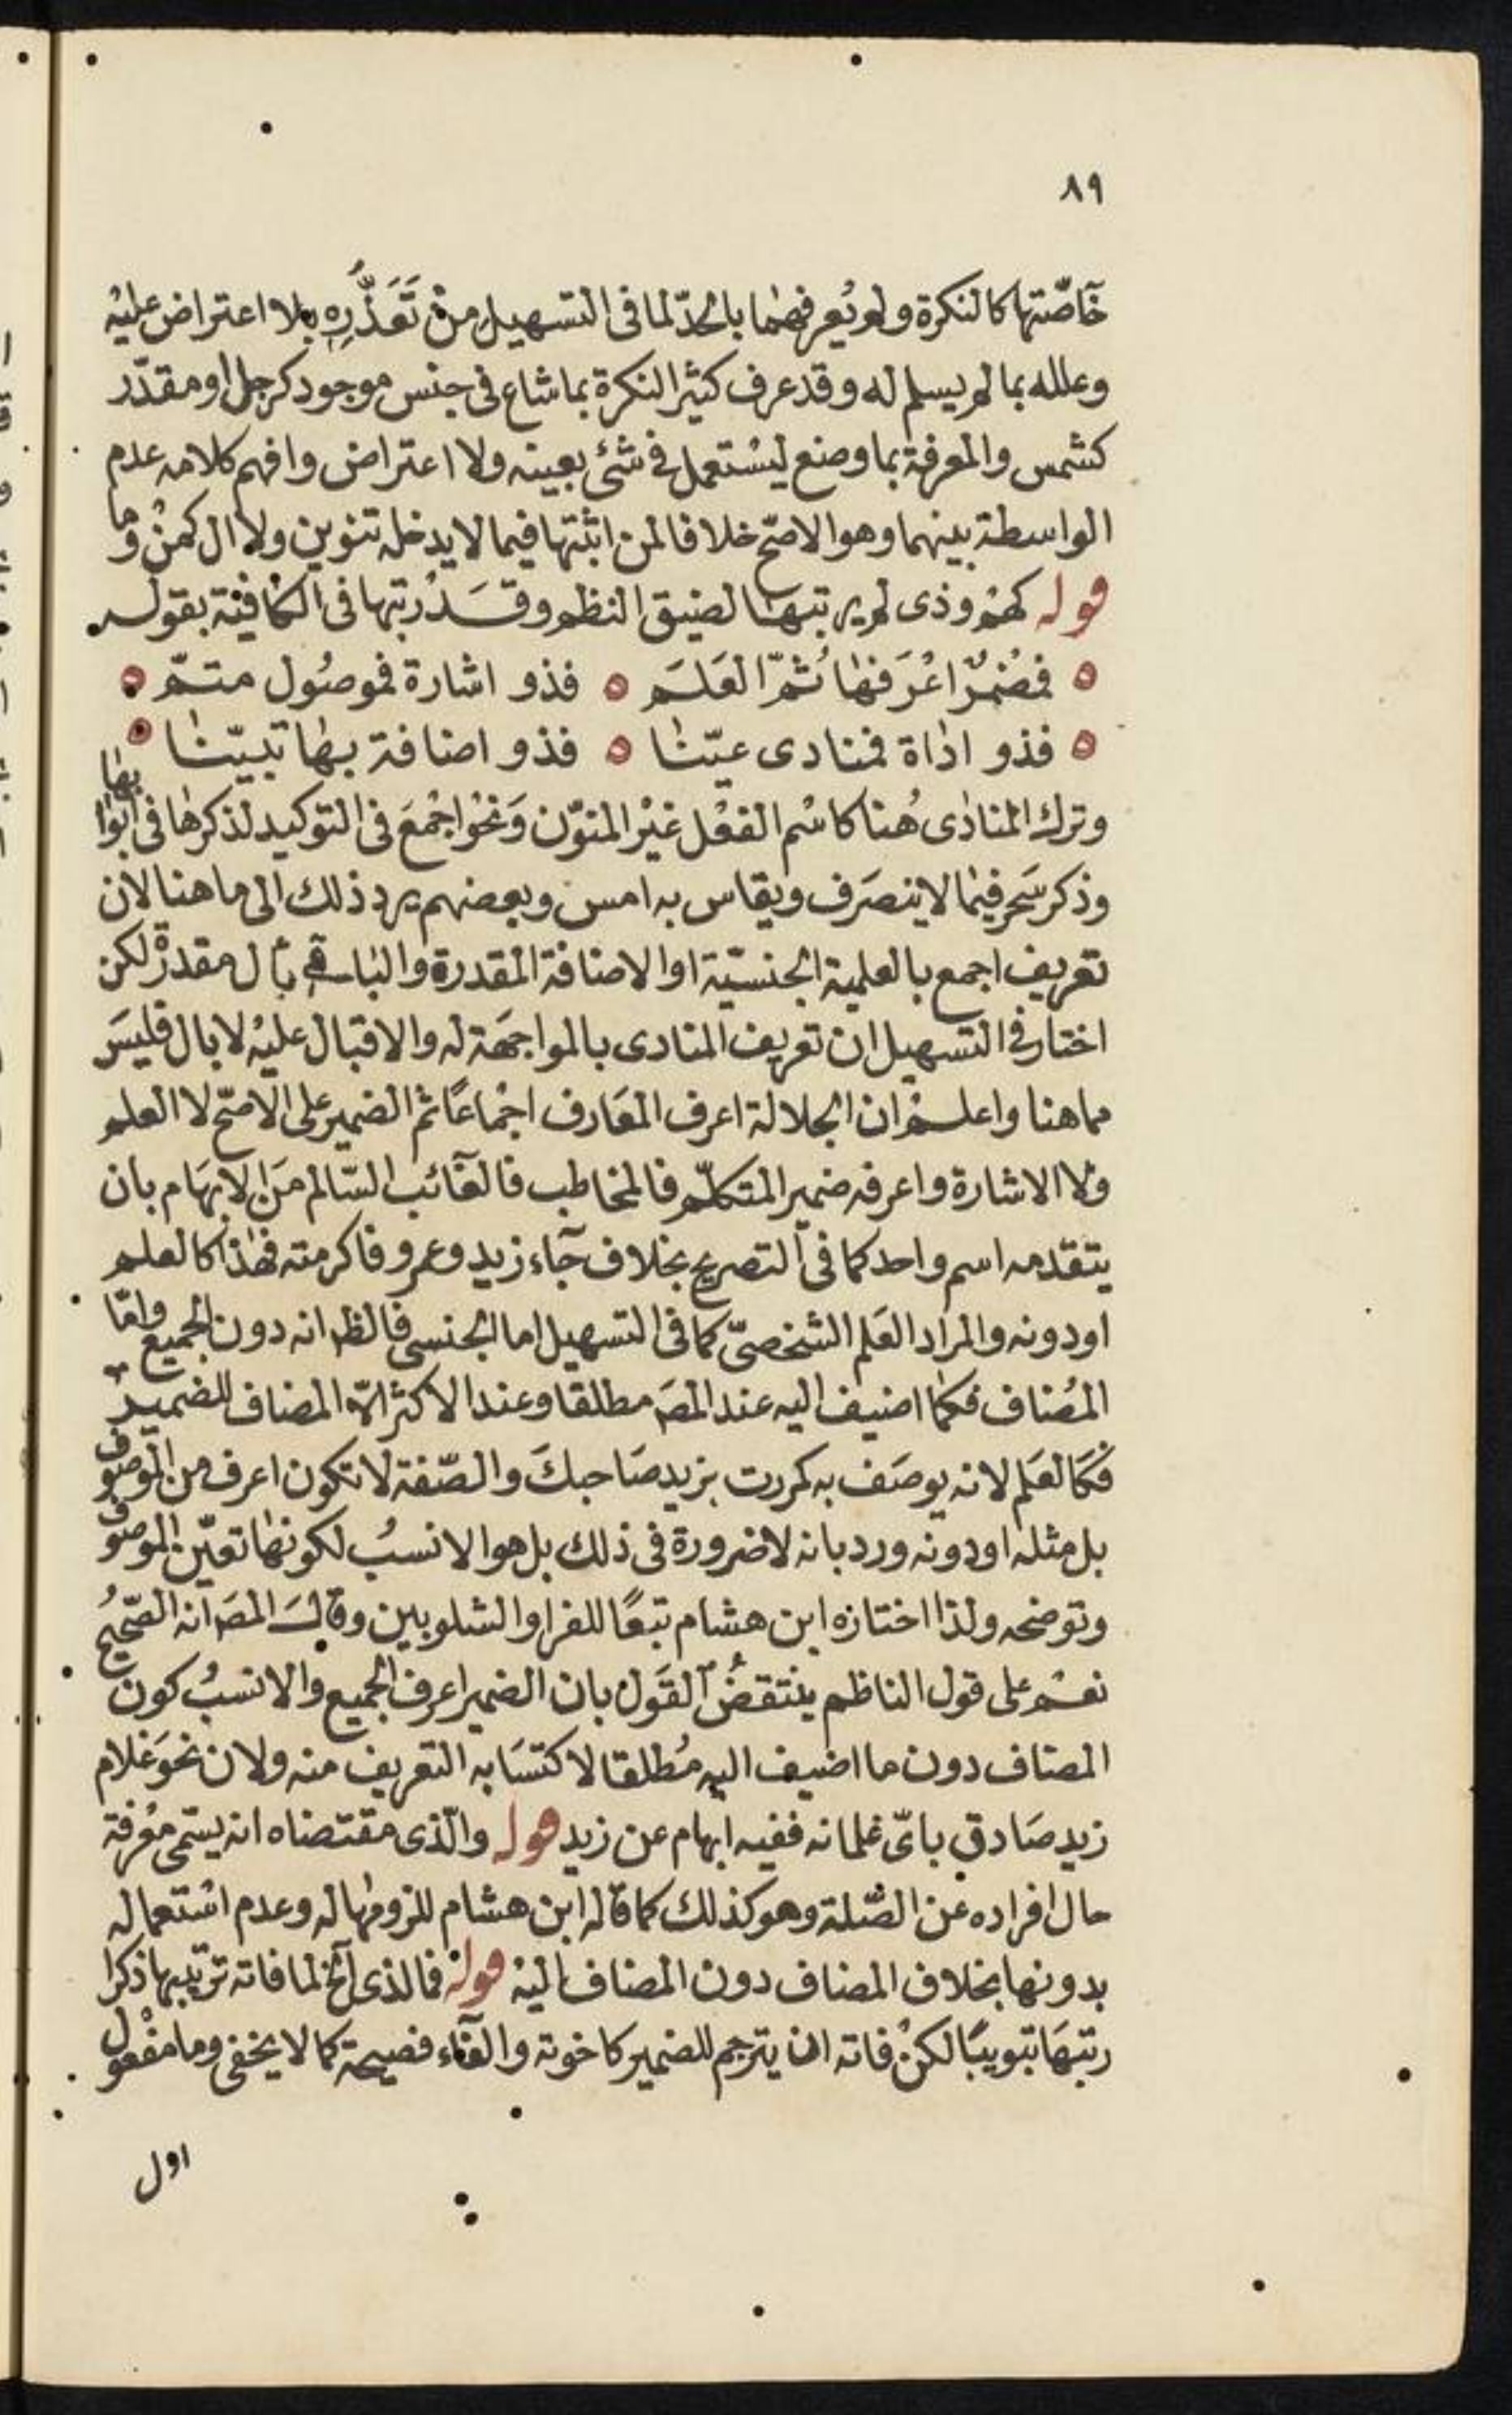 ٨٩
خآصّتها كالنكرة ولم يُعرفهما بالحدّ لما فى التسهيل من تَعَذُّرِه بلا اعتراض عليْه
وعلله بما لم يسلم له وقد عرف كثير النكرة بما شاع فى جنس موجود كرجل او مقدّر
كشمس والمعرفة بما وضع ليسْتعمل فى شئ بعينه ولا اعتراض وافهم كلامه عدم
الواسطة بينهما وهو الاصحّ خلافا لمن اثبتها فيما لا يدخله تنوين ولا ال كمنْ وما
قوله كهم وذى لم يرتبهَا لضيق النظم وقَد رتبها فى الكافية بقوله
فمُضمرٌ اعْرَفهَا ثُمّ العَلَم فذو اشارة فموصُول متمّ
فذو اداة فمنادى عيّنا فذو اضافة بها تبيّنا
وترك المنادى هُنا كاسْم الفعْل غيْر المنوّن وَنحْو اجْمعَ فى التوكيد لذكرها فى ابوابها
وذكر سَحر فيما لا ينصَرف ويقاس به امس وبعضهم يرد ذلك الى ما هنا لان
تعريف اجمع بالعلمية الجنسيّة او الاضافة المقدرة والباقى بأل مقدرةً لكن
اختار فى التسهيل ان تعريف المنادى بالمواجهَة له والاقبال عليْه لا بال فليسَ
مما هنا واعلم ان الجلالة اعرف المعَارف اجْماعًا ثم الضمير على الاصحّ لا العلم
ولا الاشارة واعرفه ضمير المتكلّم فالمخاطب فالغآئب السّالم مَن الابهَام بان
يتقدمه اسم واحد كما فى التصريح بخلاف جآء زيد وعمرو فاكرمته فهٰذا كالعلم
او دونه والمراد العَلم الشخصىّ كما فى التسهيل اما الجنسى فالظ انه دون الجميع وامّا
المُضاف فكما اضيف اليه عند المصَ مطلقا وعند الاكثر الاّ المضاف للضمير
فكَالعَلم لانه يوصَف به كمررت بزيد صَاحبكَ والصّفة لا تكون اعرف من الموصوف
بل مثله او دونه ورد بانه لا ضرورة فى ذلك بل هو الانسبُ لكونها تعيّن الموصوف
وتوضحه ولذا اختاره ابن هشام تبعًا للفرا والشلوبين وقالَ المصَ انه الصّحيحُ
نعَم على قول الناظم ينتقضُ القَول بان الضمير اعرف الجميع والانسبُ كون
المضاف دون ما اضيف اليه مُطلقا لاكتسَابه التعريف منه ولان نحوَ غلام
زيد صَادق باىّ غلمانه ففيه ابهام عن زيد قوله والّذى مقتضاه انه يسَمى معْرفة
حال افراده عن الصّلة وهو كذلك كما قاله ابن هشام للزومها له وعدم اسْتعماله
بدونها بخلاف المضاف دون المضاف اليْه قوله فما لذى الخ لما فاته ترتيبها ذكرا
رتبهَا تبويبًا لكنْ فاته ان يترجم للضمير كاخوته والفآء فصيحة كما لا يخفى وما مفْعول
اول